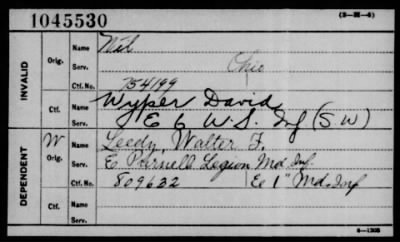 1045530
(3—M—4)
INVALID
Orig.
Name Nil
Serv. Ohio
Ctf. No. 754199
Ctf.
Name Wyper David
Serv. E 6 U.S. Inf (S W)
DEPENDENT
W
Orig.
Name Leedy, Walter F.
Serv. E Purnell Legion Md. Inf.
Ctf. No. 809632 Ec 1" Md. Inf
Ctf.
Name
Serv.
6—1305